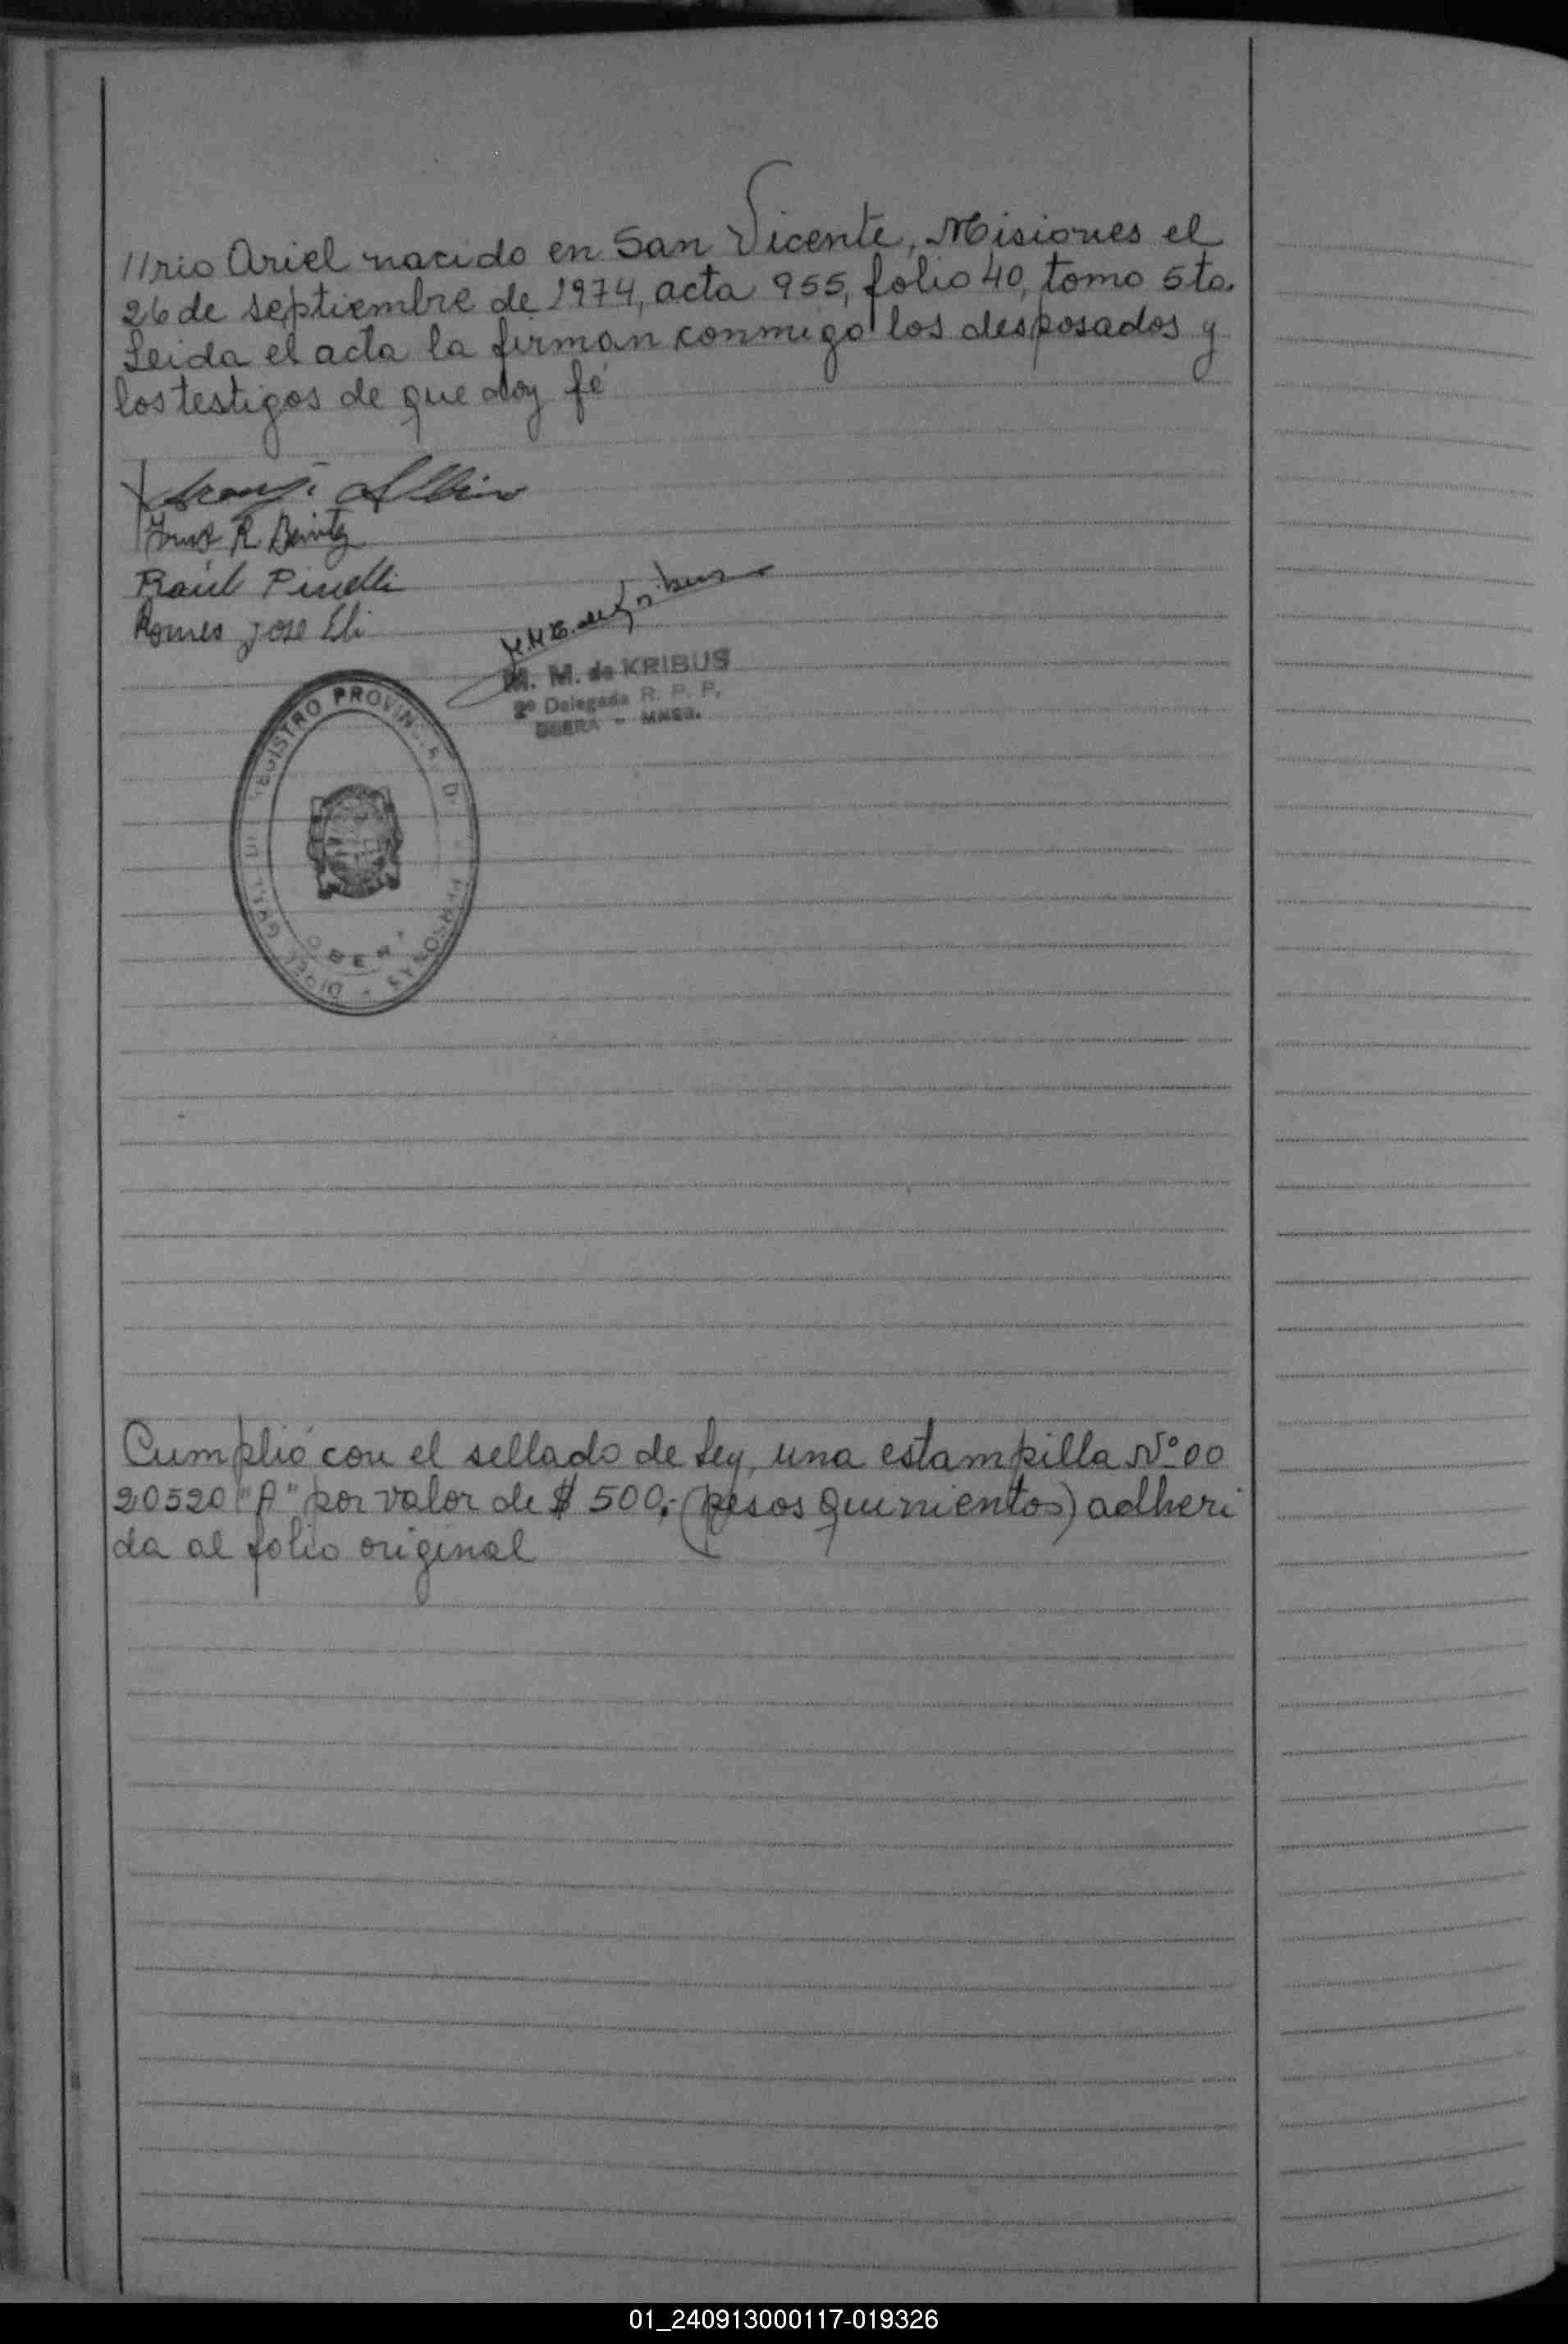 //rio Ariel nacido en San Vicente, Misiones el
26 de septiembre de 1974, acta 955, folio 40, tomo 5to.
Leida el acta la firman conmigo los desposados y
los testigos de que doy fé
Albino
R. Benitez
Raúl Pinelli
Romeo Jose Eli
M. M. de KRIBUS
2º Delegada R. P. P.
OBERA - MNES.
REGISTRO PROVINCIAL DE PERSONAS - DIREC. GRAL. DEL
OBERA
Cumplió con el sellado de Ley, una estampilla Nº 00
20520 "A" por valor de $ 500,- (pesos quinientos) adheri
da al folio original
01_240913000117-019326